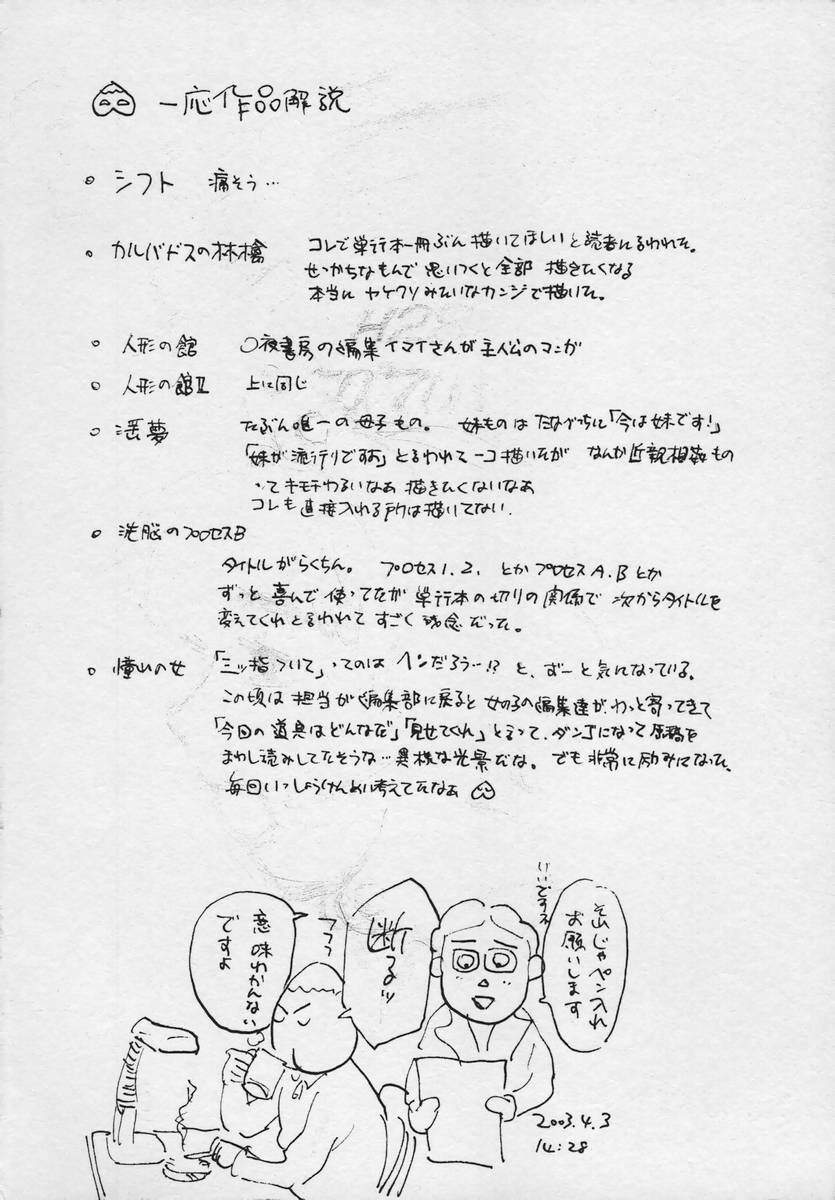 一応作品解説
○ シフト 痛そう…
○ カルバドスの林檎 コレで単行本一冊ぶん描いてほしいと読者に言われた。
せっかちなもんで思いつくと全部描きたくなる
本当にヤケクソみたいなカンジで描いた。
○ 人形の館 ○夜書房の編集イマイさんが主人公のマンガ
○ 人形の館Ⅱ 上に同じ
○ 淫夢 たぶん唯一の母子もの。 妹ものは たながっちに「今は妹です!」
「妹が流行りですよ」と言われて一コ描いたが なんか近親相姦もの
ってキモチわるいなぁ 描きたくないなぁ
コレも直接入れる所は描いてない.
○ 洗脳のプロセスB
タイトルがらくちん。 プロセス1.2. とか プロセスA.Bとか
ずっと喜んで使ってたが単行本の切りの関係で次からタイトルを
変えてくれと言われてすごく残念だった。
○ 憧れの女 「三ッ指ついて」ってのはヘンだろうー!? と、ずーと気になっている。
この頃は担当が編集部に戻ると女の子の編集達が、わっと寄ってきて
「今回の道具はどんなだ」「見せてくれ」と言って、ダンゴになって原稿を
まわし読みしてたそうな…異様な光景だな。でも非常に励みになった、
毎回いっしょうけんめい考えてたなぁ
それじゃペン入れ
お願いします
いいですね
断るッ
フフフ
意味わかんない
ですよ
2003.4.3
14:28